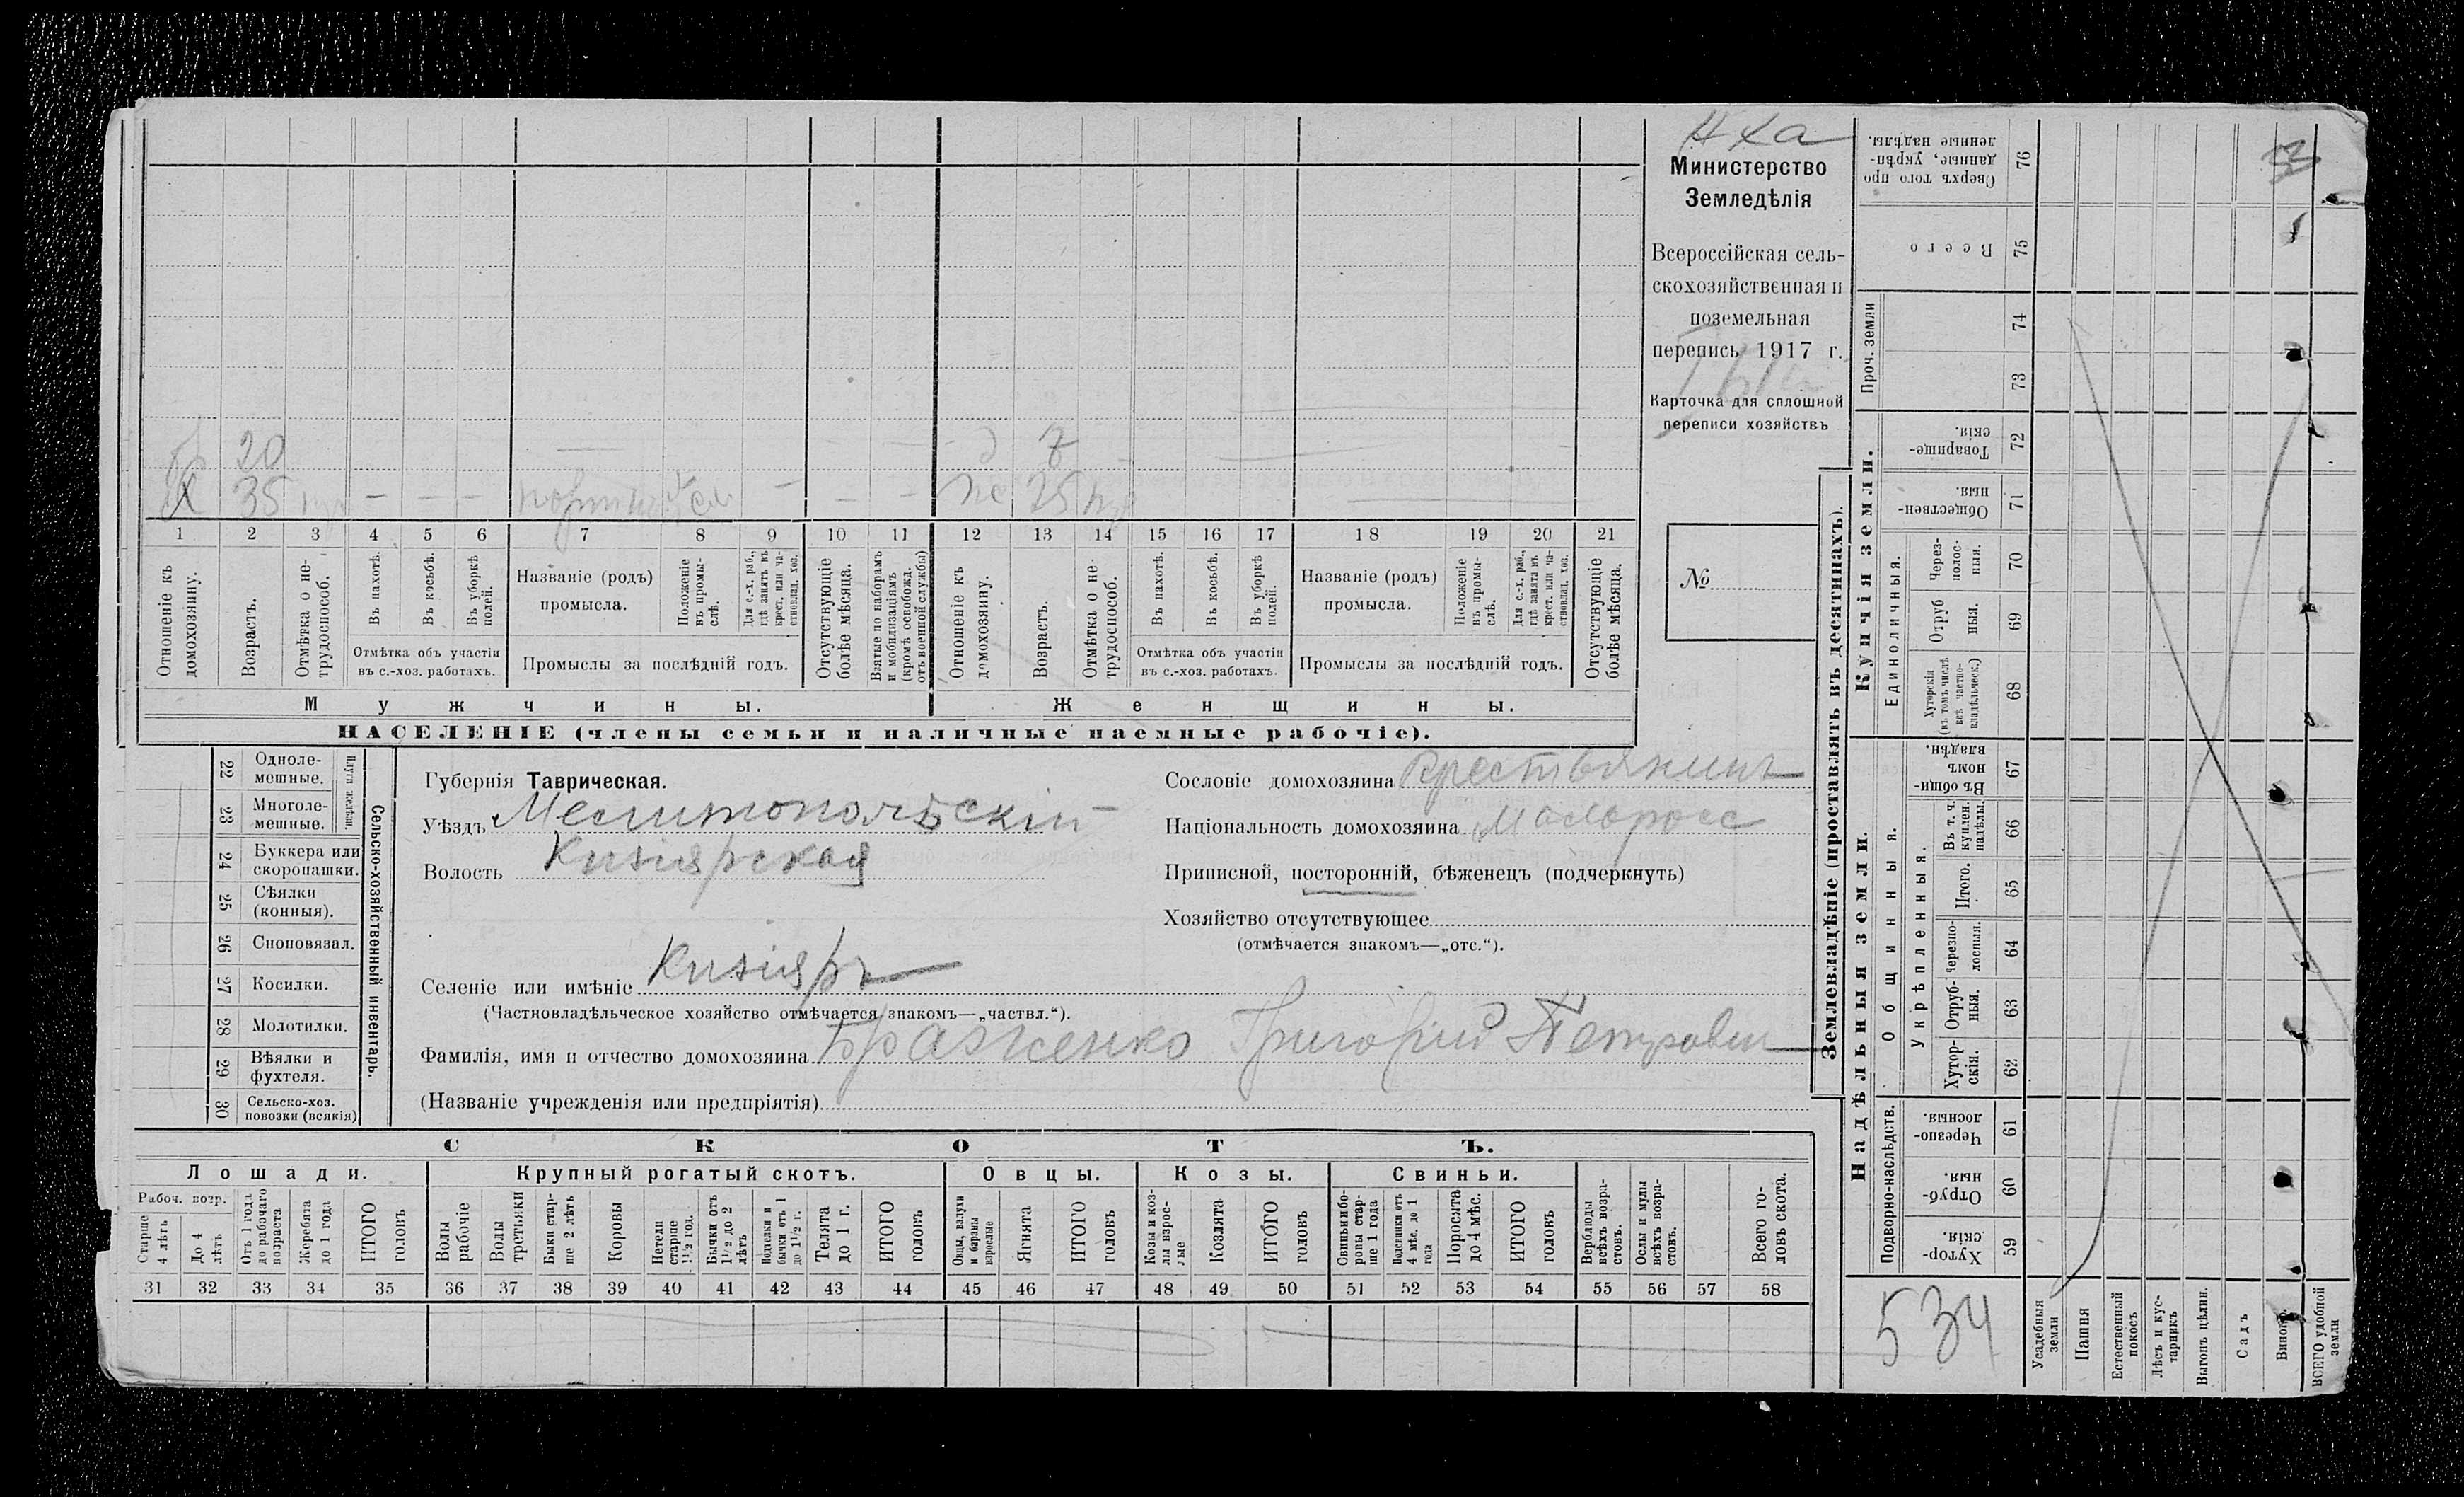 Нха
Министерство
Земледѣлія
Всероссійская сель-
скохозяйственная и
поземельная
перепись 1917 г.
Карточка для сплошной
переписи хозяйствъ
№
20 д 7
Х 35 — — — портн — — — же 25
1 2 3 4 5 6 7 8 9 10 11 12 13 14 15 16 17 18 19 20 21
Отношеніе къ домохозяину.
Возрастъ.
Отмѣтка о не-трудоспособ.
Въ пахотѣ.
Въ косьбѣ.
Въ уборкѣ полей.
Отмѣтка объ участіи въ с.-хоз. работахъ.
Названіе (родъ) промысла.
Положеніе въ промы-слѣ.
Для с.-х. раб., гдѣ занятъ въ крест. или ча-стновлад. хоз.
Промыслы за послѣдній годъ.
Отсутствующіе болѣе мѣсяца.
Взятые по наборамъ и мобилизаціямъ (кромѣ освобожд. отъ военной службы)
Отношеніе къ домохозяину.
Возрастъ.
Отмѣтка о не-трудоспособ.
Въ пахотѣ.
Въ косьбѣ.
Въ уборкѣ полей.
Отмѣтка объ участіи въ с.-хоз. работахъ.
Названіе (родъ) промысла.
Положеніе въ промы-слѣ.
Для с.-х. раб., гдѣ занятъ въ крест. или ча-стновлад. хоз.
Промыслы за послѣдній годъ.
Отсутствующіе болѣе мѣсяца.
Мужчины. Женщины.
НАСЕЛЕНІЕ (члены семьи и наличные наемные рабочіе).
Сельско-хозяйственный инвентарь.
Плуги желѣзн.
22 Одноле-мешные.
23 Многоле-мешные.
24 Буккера или скоропашки.
25 Сѣялки (конныя).
26 Сноповязал.
27 Косилки.
28 Молотилки.
29 Вѣялки и фухтеля.
30 Сельско-хоз. повозки (всякія)
Губернія Таврическая.
Уѣздъ Мелитопольскій
Волость Кизіярская
Селеніе или имѣніе Кизіяръ
(Частновладѣльческое хозяйство отмѣчается знакомъ—„частвл.“).
Фамилія, имя и отчество домохозяина Браженко Григорій Петрович
(Названіе учрежденія или предпріятія)
Сословіе домохозяина Крестьянинъ
Національность домохозяина Малоросс
Приписной, посторонній, бѣженецъ (подчеркнуть)
Хозяйство отсутствующее
(отмѣчается знакомъ—„отс.“).
СКОТЪ.
Лошади. Крупный рогатый скотъ. Овцы. Козы. Свиньи.
Рабоч. возр.
Старше 4 лѣтъ
До 4 лѣтъ
Отъ 1 года до рабочаго возраста
Жеребята до 1 года
ИТОГО головъ
Волы рабочіе
Волы третьяки
Быки стар-ше 2 лѣтъ
Коровы
Нетели старше 1½ год.
Бычки отъ 1½ до 2 лѣтъ
Подтелки и бычки отъ 1 до 1½ г.
Телята до 1 г.
ИТОГО головъ
Овцы, валухи и бараны взрослые
Ягнята
ИТОГО головъ
Козы и коз-лы взрос-лые
Козлята
ИТОГО головъ
Свиньи и бо-ровы стар-ше 1 года
Подсвинки отъ 4 мѣс. до 1 года
Поросята до 4 мѣс.
ИТОГО головъ
Верблюды всѣхъ возра-стовъ.
Ослы и мулы всѣхъ возра-стовъ.
Всего го-ловъ скота.
31 32 33 34 35 36 37 38 39 40 41 42 43 44 45 46 47 48 49 50 51 52 53 54 55 56 57 58
Землевладѣніе (проставлять въ десятинахъ).
Надѣльныя земли.
Купчія земли.
Проч. земли
Подворно-наслѣдств.
Общинныя.
Укрѣпленныя.
Единоличныя.
Сверхъ того про данные, укрѣп-ленные надѣлы. 76
Всего 75
74
73
Товарище-скія. 72
Обществен-ныя. 71
Через-полос-ныя. 70
Отруб ныя. 69
Хуторскія (въ томъ числѣ всѣ частно-владѣльческ.) 68
Въ общи номъ владѣн. 67
Въ т. ч. куплен. надѣлы. 66
Итого. 65
Черезпо-лосныя. 64
Отруб-ныя. 63
Хутор-скія. 62
Черезпо-лосныя. 61
Отруб-ныя. 60
Хутор-скія. 59
534
Усадебныя земли
Пашня
Естественный покосъ
Лѣсъ и кус-тарникъ
Выгонъ цѣлин.
Садъ
ВСЕГО удобной земли